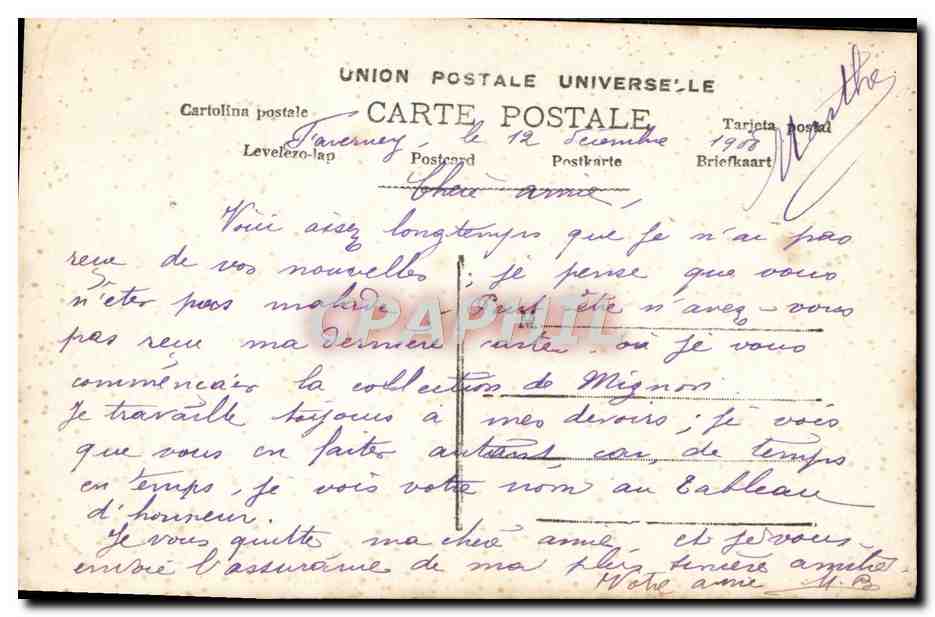 UNION POSTALE UNIVERSELLE
Cartolina postale CARTE POSTALE Tarjeta postal
Faverney, le 12 décembre 1908
Levelezo-lap Postcard Postkarte Briefkaart
Marthe
Chère amie,
Voici assez longtemps que je n'ai pas
reçu de vos nouvelles ; je pense que vous
n'êtes pas malade. Peut être n'avez-vous
M
pas reçu ma dernière carte, où je vous
commençais la collection de Mignon
Je travaille toujours à mes devoirs ; je vois
que vous en faites autant, car, de temps
en temps, je vois votre nom au Tableau
d'honneur.
Je vous quitte ma chère amie, et je vous
envoie l'assurance de ma plus sincère amitié.
Votre amie M. B
CPAPHIL